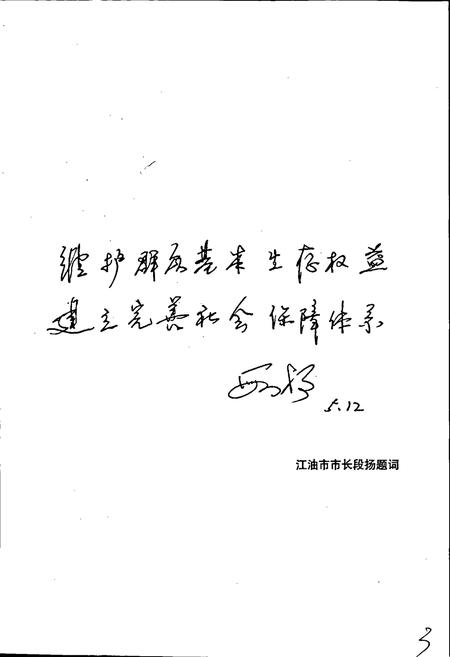 维护群众基本生存权益
建立完善社会保障体系
段扬 5.12
江油市市长段扬题词
3